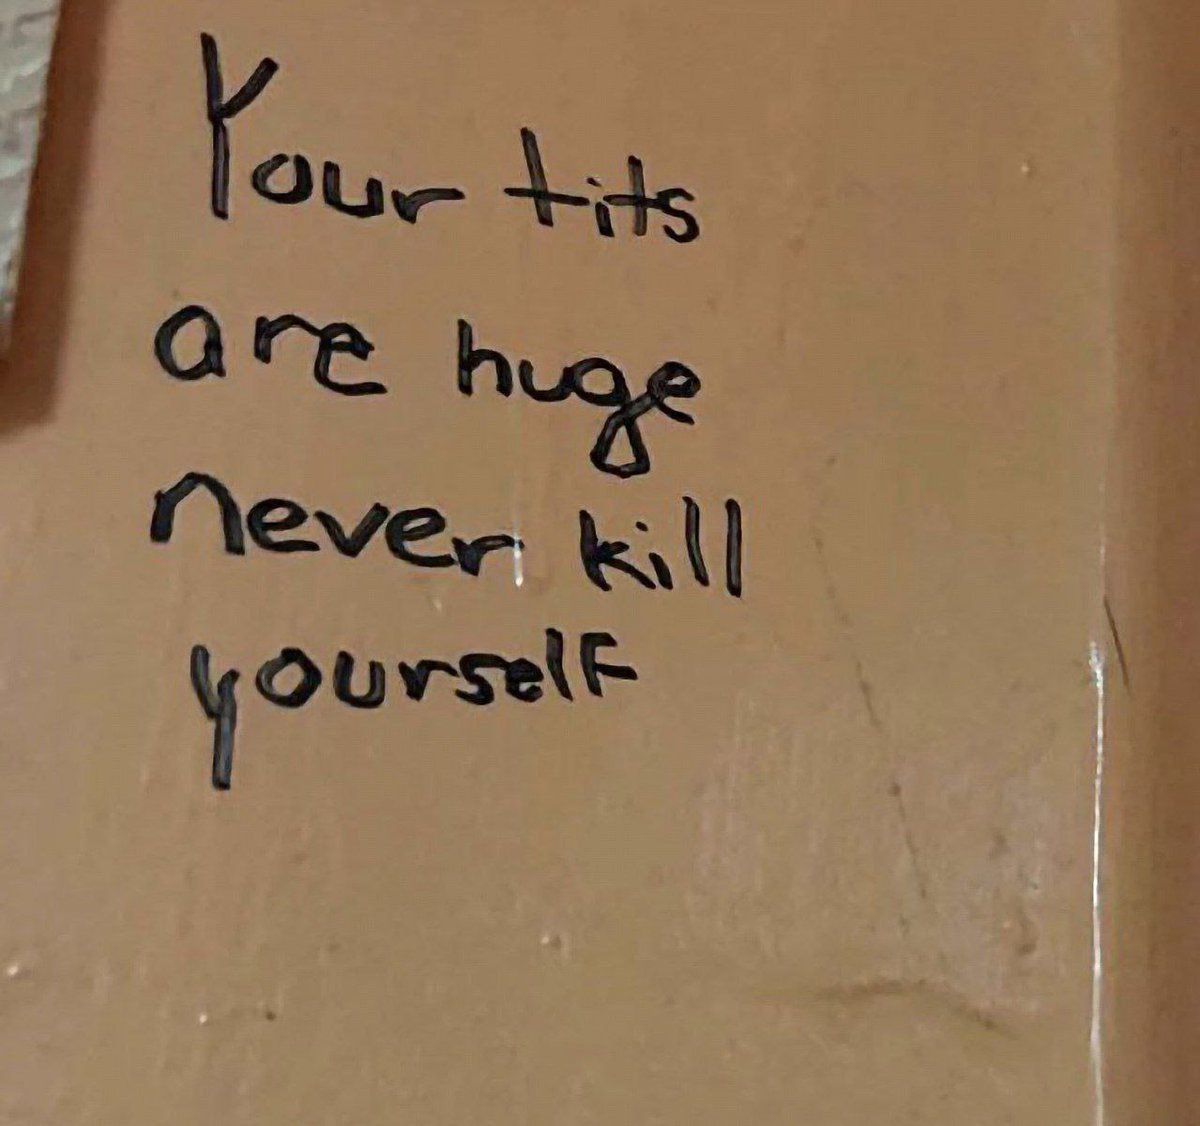 Your tits
are huge
never kill
yourself